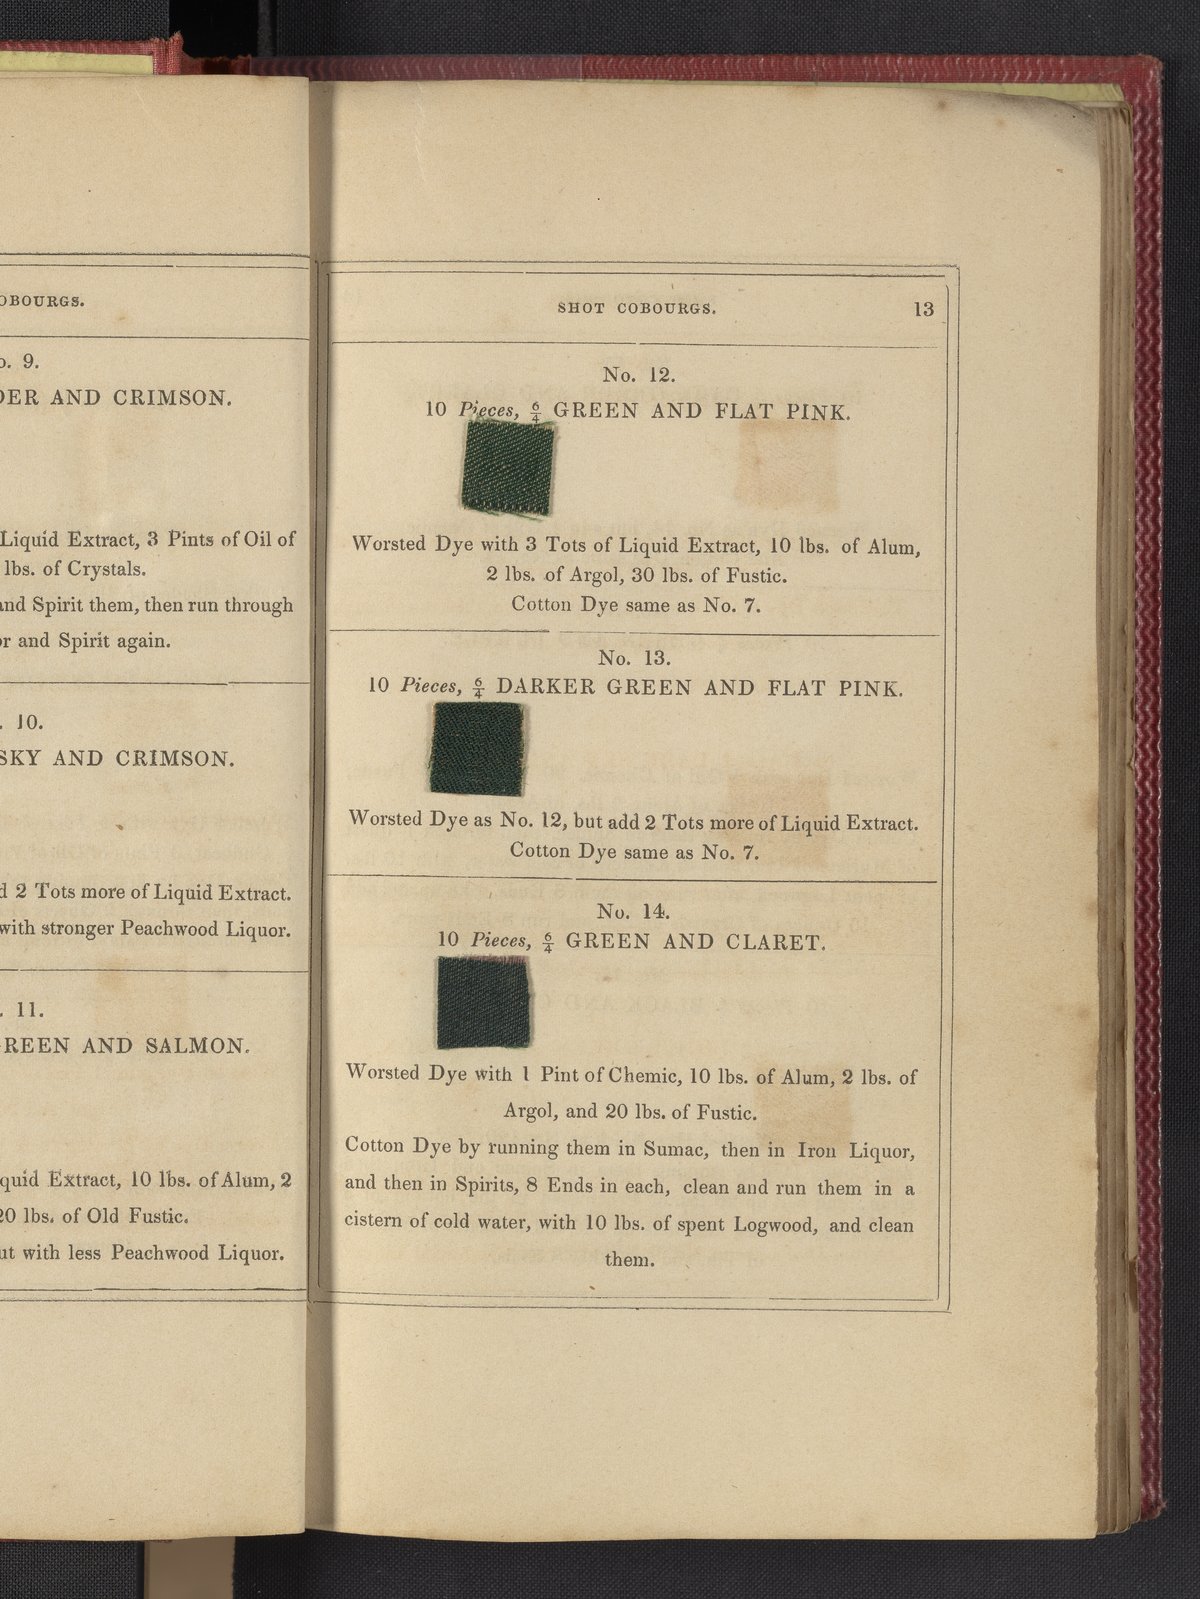 OBOURGS.
o. 9.
DER AND CRIMSON.
Liquid Extract, 3 Pints of Oil of
lbs. of Crystals.
and Spirit them, then run through
or and Spirit again.
. 10.
SKY AND CRIMSON.
d 2 Tots more of Liquid Extract.
with stronger Peachwood Liquor.
. 11.
GREEN AND SALMON.
quid Extract, 10 lbs. of Alum, 2
20 lbs. of Old Fustic.
ut with less Peachwood Liquor.
SHOT COBOURGS. 13
No. 12.
10 Pieces, 6/4 GREEN AND FLAT PINK.
Worsted Dye with 3 Tots of Liquid Extract, 10 lbs. of Alum,
2 lbs. of Argol, 30 lbs. of Fustic.
Cotton Dye same as No. 7.
No. 13.
10 Pieces, 6/4 DARKER GREEN AND FLAT PINK.
Worsted Dye as No. 12, but add 2 Tots more of Liquid Extract.
Cotton Dye same as No. 7.
No. 14.
10 Pieces, 6/4 GREEN AND CLARET.
Worsted Dye with 1 Pint of Chemic, 10 lbs. of Alum, 2 lbs. of
Argol, and 20 lbs. of Fustic.
Cotton Dye by running them in Sumac, then in Iron Liquor,
and then in Spirits, 8 Ends in each, clean and run them in a
cistern of cold water, with 10 lbs. of spent Logwood, and clean
them.